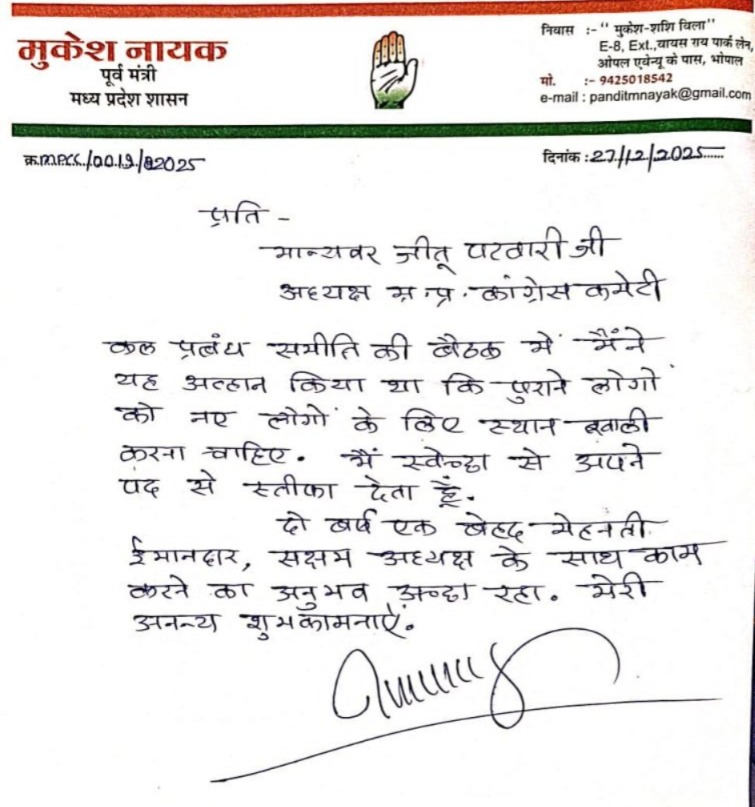 मुकेश नायक
पूर्व मंत्री
मध्य प्रदेश शासन
निवास :- " मुकेश-शशि विला"
E-8, Ext.,वायस राय पार्क लेन,
ओपल एवेन्यू के पास, भोपाल
मो. :- 9425018542
e-mail : panditmnayak@gmail.com
क्र.M.P.C.C./00.19./82025
दिनांक :27/12/2025......
प्रति -
मान्यवर जीतू पटवारी जी
अध्यक्ष म.प्र. कांग्रेस कमेटी
कल प्रबंध समीति की बैठक में मैंने
यह अव्हान किया था कि पुराने लोगों
को नए लोगों के लिए स्थान खाली
करना चाहिए. मैं स्वेच्छा से अपने
पद से स्तीफा देता हूँ.
दो वर्ष एक बेहद मेहनती
ईमानदार, सक्षम अध्यक्ष के साथ काम
करने का अनुभव अच्छा रहा. मेरी
अनन्य शुभकामनाऐं.